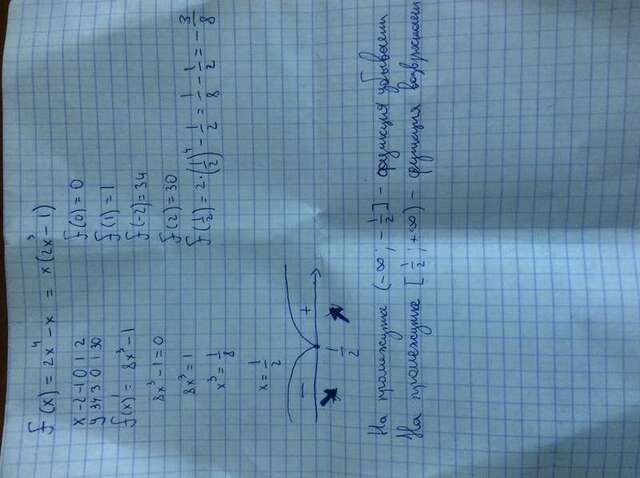 f(x) = 2x⁴ - x = x(2x³ - 1)
x -2 -1 0 1 2
y 34 3 0 1 30
f(x)' = 8x³ - 1
8x³ - 1 = 0
8x³ = 1
x³ = 1/8
x = 1/2
f(0) = 0
f(1) = 1
f(-2) = 34
f(2) = 30
f(1/2) = 2·(1/2)⁴ - 1/2 = 1/8 - 1/2 = -3/8
- +
1/2
На промежутке (-∞; -1/2] - функция убывает
На промежутке [1/2; +∞) - функция возврастает